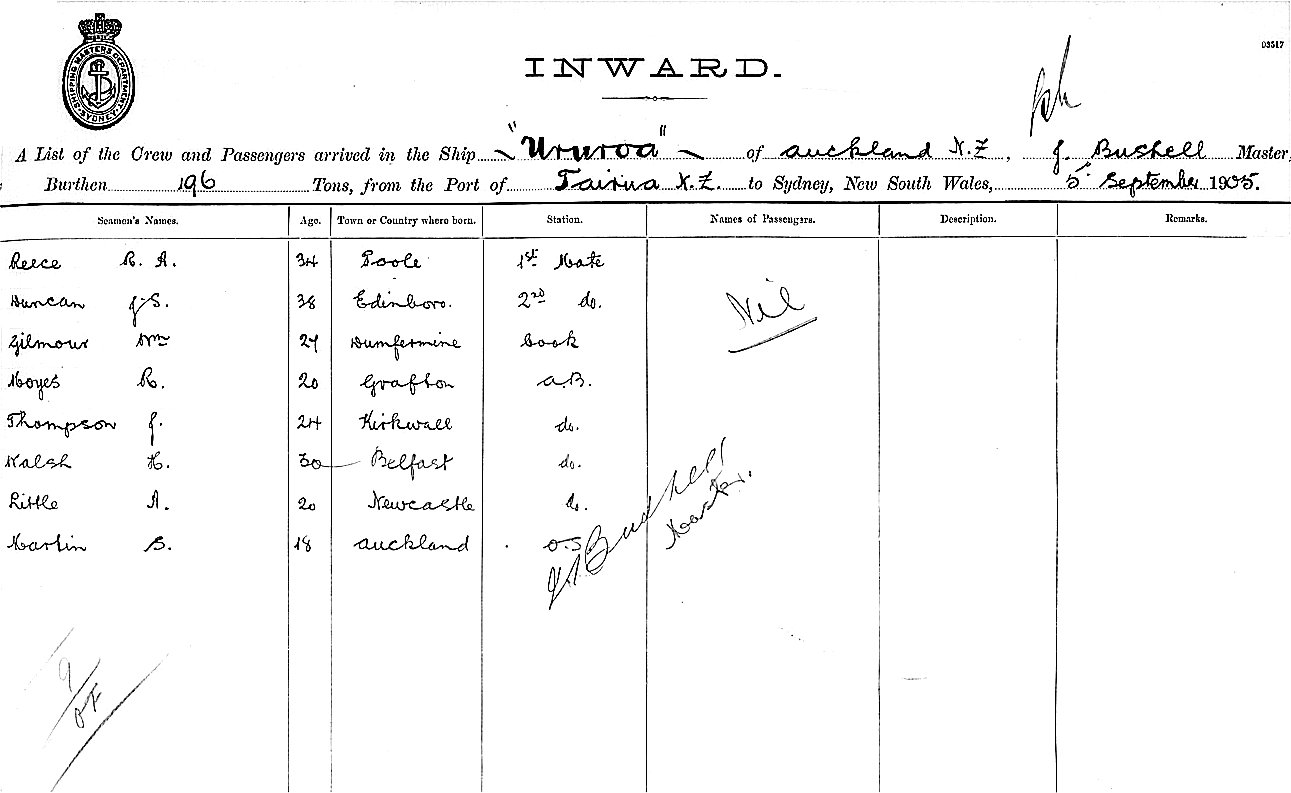 03517
SHIPPING MASTERS DEPARTMENT
SYDNEY
INWARD.
A List of the Crew and Passengers arrived in the Ship "Ururoa" of Auckland N.Z, J. Bushell Master,
Burthen 196 Tons, from the Port of Tairua N.Z. to Sydney, New South Wales, 5th September 1905.
Seamen's Names. Age. Town or Country where born. Station. Names of Passengers. Description. Remarks.
Reece R. A. 34 Poole 1st Mate
Duncan J. S. 38 Edinboro. 2nd do. Nil
Gilmour Wm 27 Dumfermine Cook
Noyes R. 20 Grafton A.B.
Thompson J. 24 Kirkwall do.
Walsh H. 30 Belfast do.
Little A. 20 Newcastle do.
Martin B. 18 Auckland O.S
Bushell
Master.
9